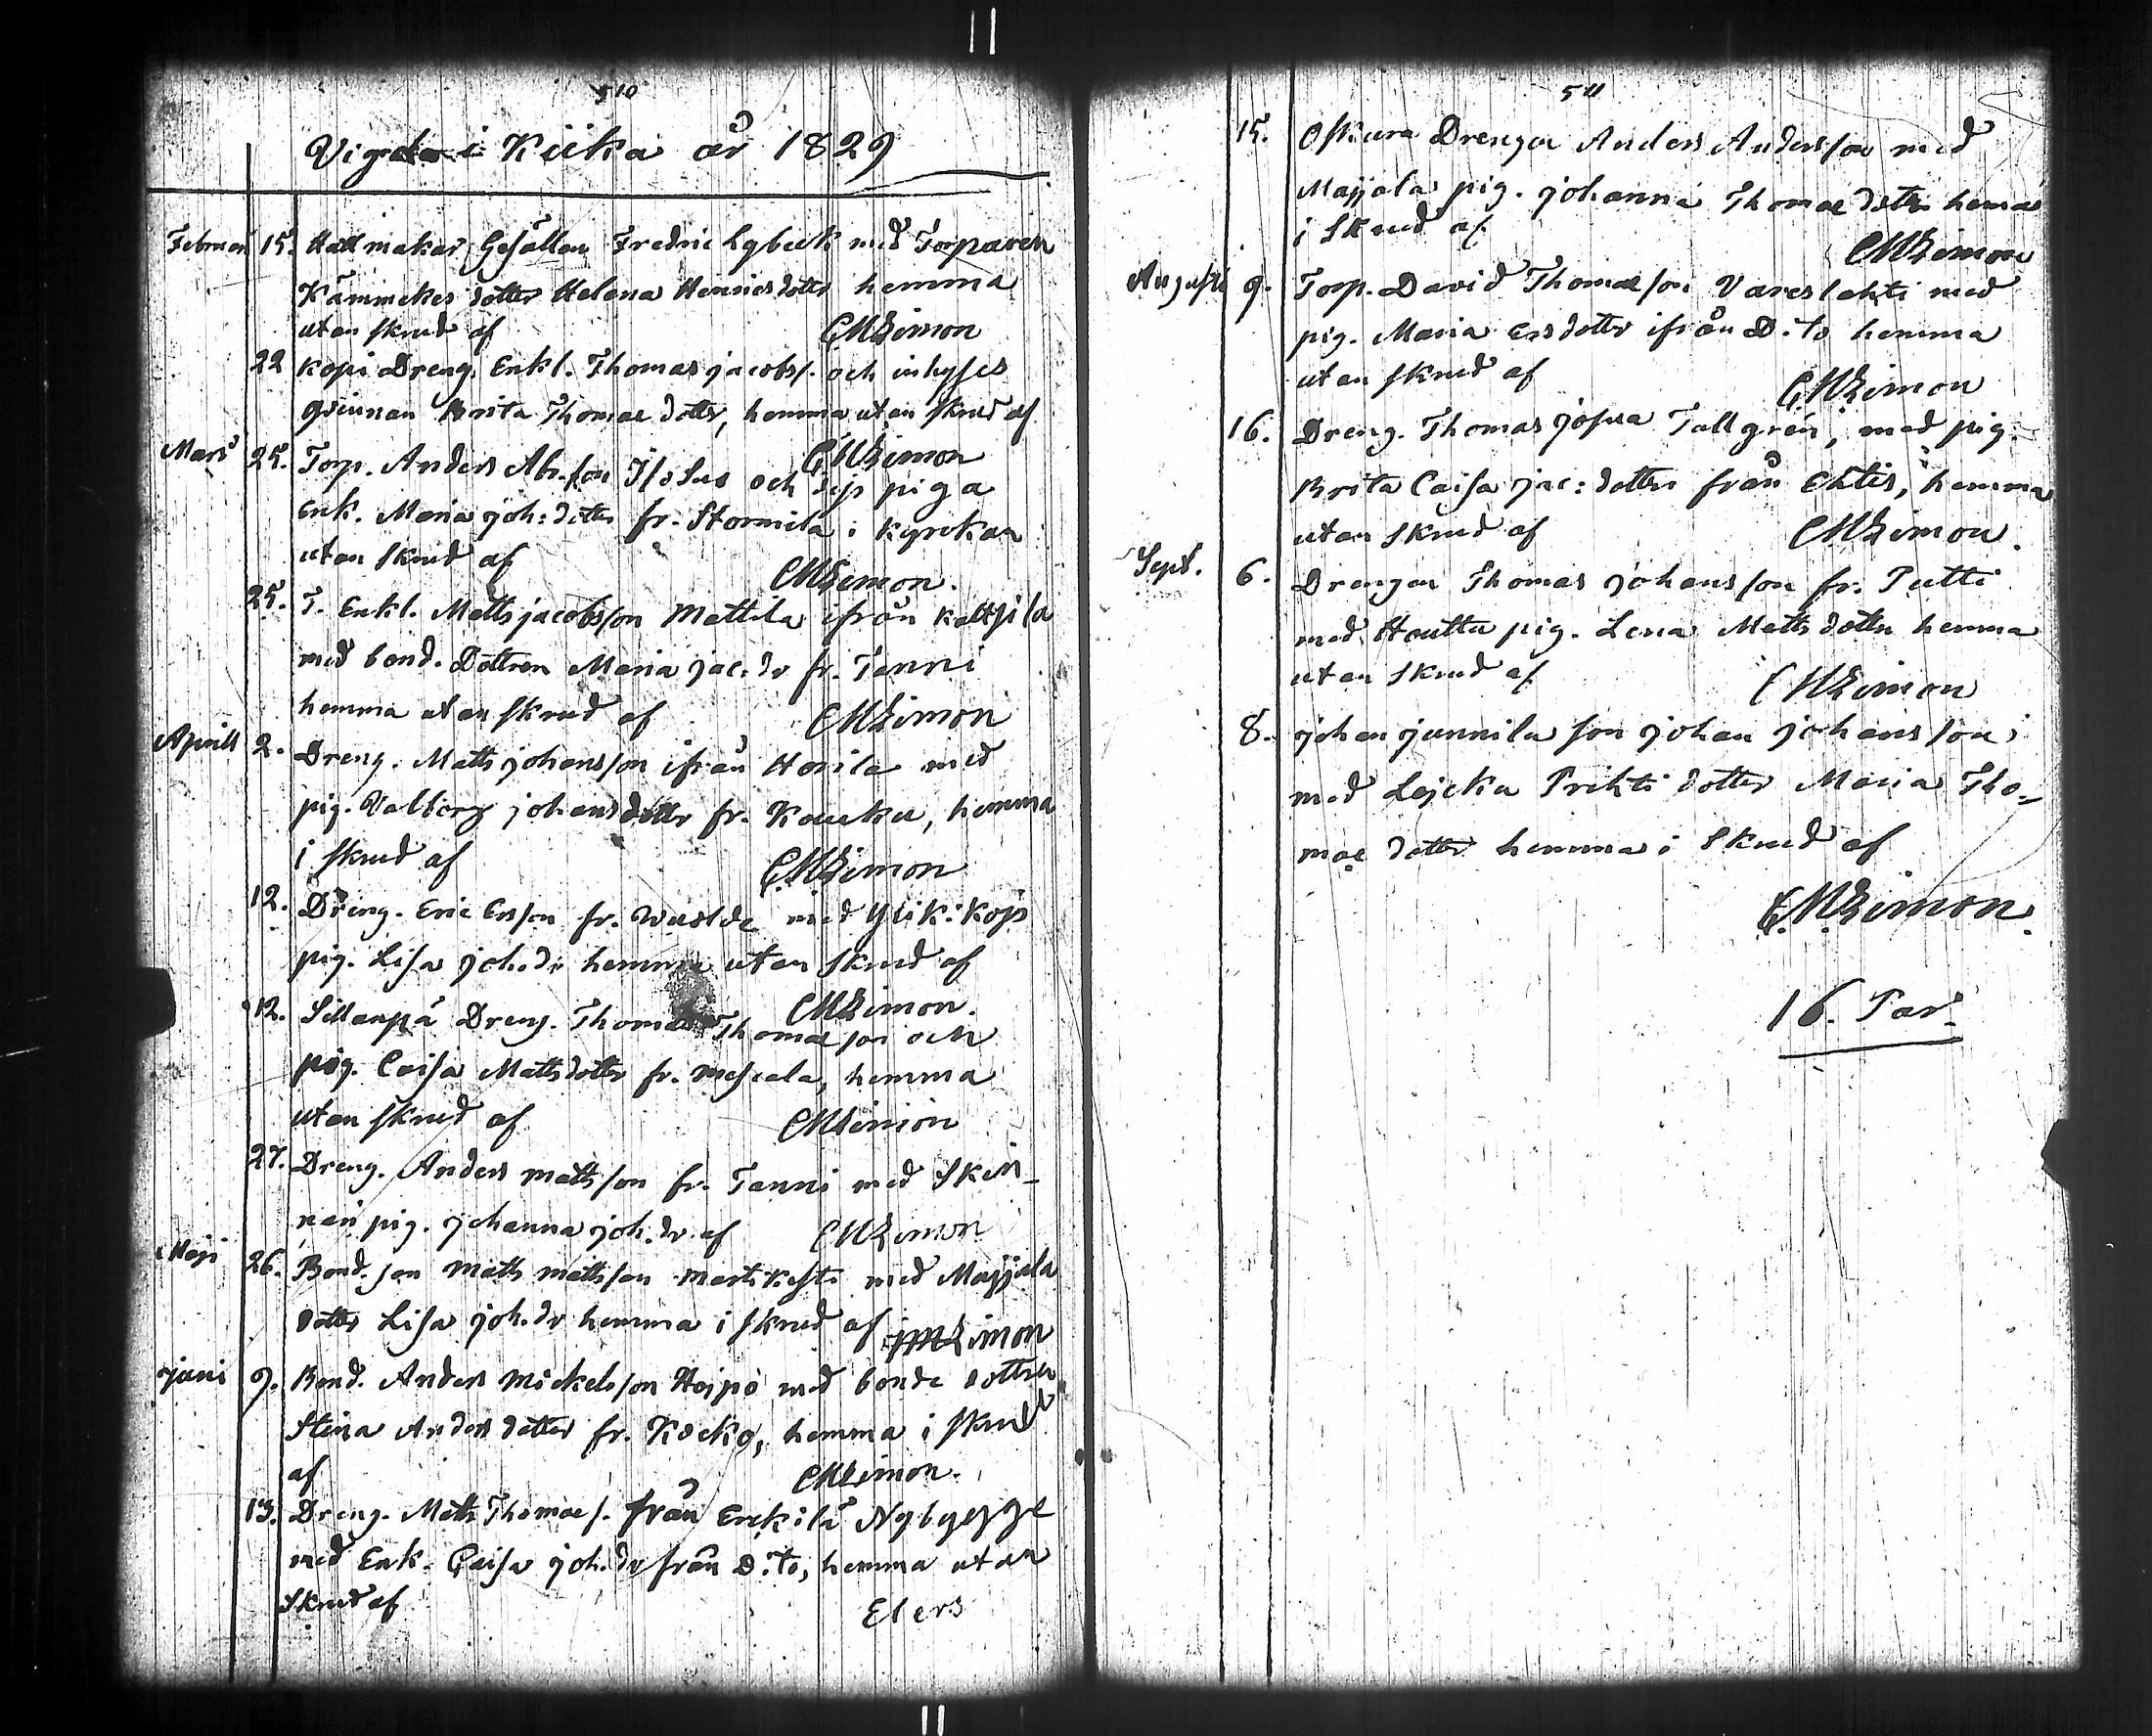 510
Vigda i Kiika år 1829
Februari 15. Hattmakar Gesällen Fredric Lybeck med Torparen
Kämmekes dotter Helena Henricsdotter hemma
utan skrud af CMLimon
22 Kopi Dreng. Enkl. Thomas jacobs/. och inhyses
qvinnan Brita Thomae dotter, hemma utan skrud af
CMLimon
Mars 25. Torp. Anders Abr.son Isosuo och piga
Enk. Maria joh: dotter fr. Stormila i kyrkan
utan skrud af CMLimon.
25. T. Enkl. Matts jacobsson Mattila ifrån Kaltsila
med bond. Dottren Maria jac. dr fr. Tanni
hemma utan skrud af CMLimon
Aprill 2. Dreng. Matts johansson ifrån Horila med
pig. Valborg johansdotter fr. Kauku, hemma
i skrud af CMLimon
12. Dreng. Eric Ersson fr. med
pig. Lisa joh. dr hemma utan skrud af
CMLimon.
12. Sillanpä Dreng. Thomas Thomaeson och
pig. Caisa Mattsdotter fr. hemma
utan skrud af CMLimon
27. Dreng. Anders Mattsson fr. Tanni med
pig. johanna joh. dr af CMLimon
Maji 26. Bond. son Matts Mattsson med Majjala
dotter Lisa joh. dr hemma i skrud af CMLimon
juni 9. Bond. Anders Mickelsson Heipo med bonde dottren
Stina Anders dotter fr. Kocko, hemma i skrud
af CMLimon.
13. Dreng. Matts Thomae/. från Erkilä Nybygge
med Enk. Caisa joh. dr från D:to, hemma utan
Skrud af Elers
511
15. Oskura Drengen Anders Andersson med
Majjala pig. johanna Thomae dotter hema
i Skrud af CMLimon
Augusti 9. Torp. David Thomaeson Vareslahti med
pig. Maria Ersdotter ifrån D:to hemma
utan skrud af CMLimon
16. Dreng. Thomas Tallgrén, med pig.
Brita Caisa jac: dotter från Ektis, hemma
utan skrud af CMLimon.
Sept. 6. Drengen Thomas johansson fr. Putti
med Houttu pig. Lena Matts dotter hemma
utan skrud af CMLimon
8. johan junnila son johan johansson
med Lejcku Prihti dotter Maria Tho-
mae dotter hemma i Skrud af
C.M.Limon.
16. Par.